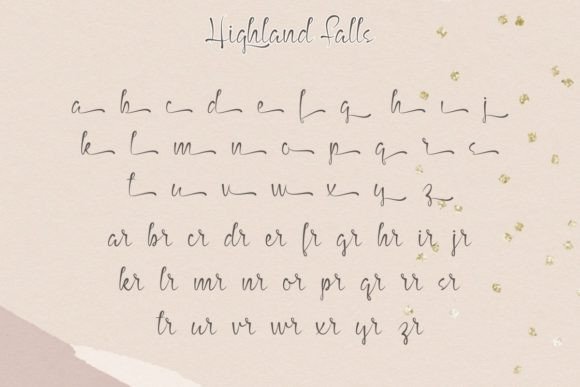 Highland Falls
a b c d e f g h i j
k l m n o p q r s
t u v w x y z
ar br cr dr er fr gr hr ir jr
kr lr mr nr or pr qr rr sr
tr ur vr wr xr yr zr